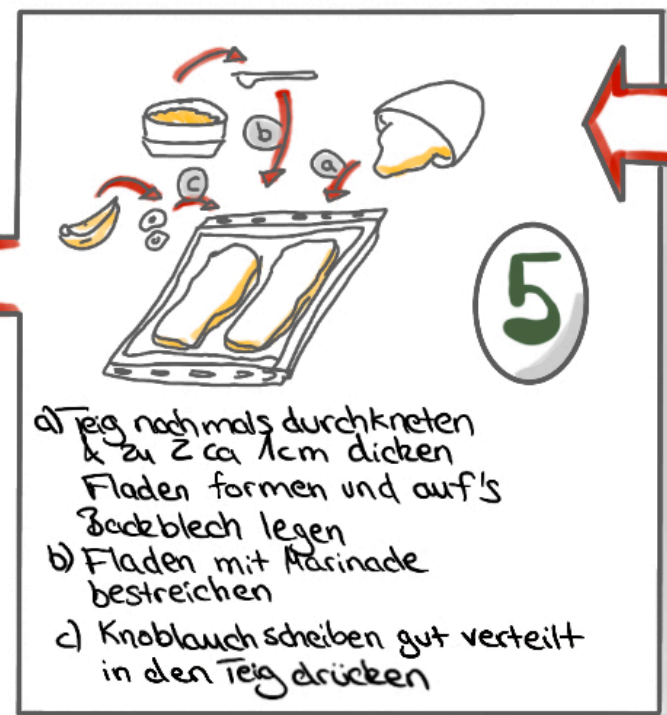 b
a
c
5
a) Teig nochmals durchkneten
& zu 2 ca 1cm dicken
Fladen formen und auf's
Backblech legen
b) Fladen mit Marinade
bestreichen
c) Knoblauch scheiben gut verteilt
in den Teig drücken